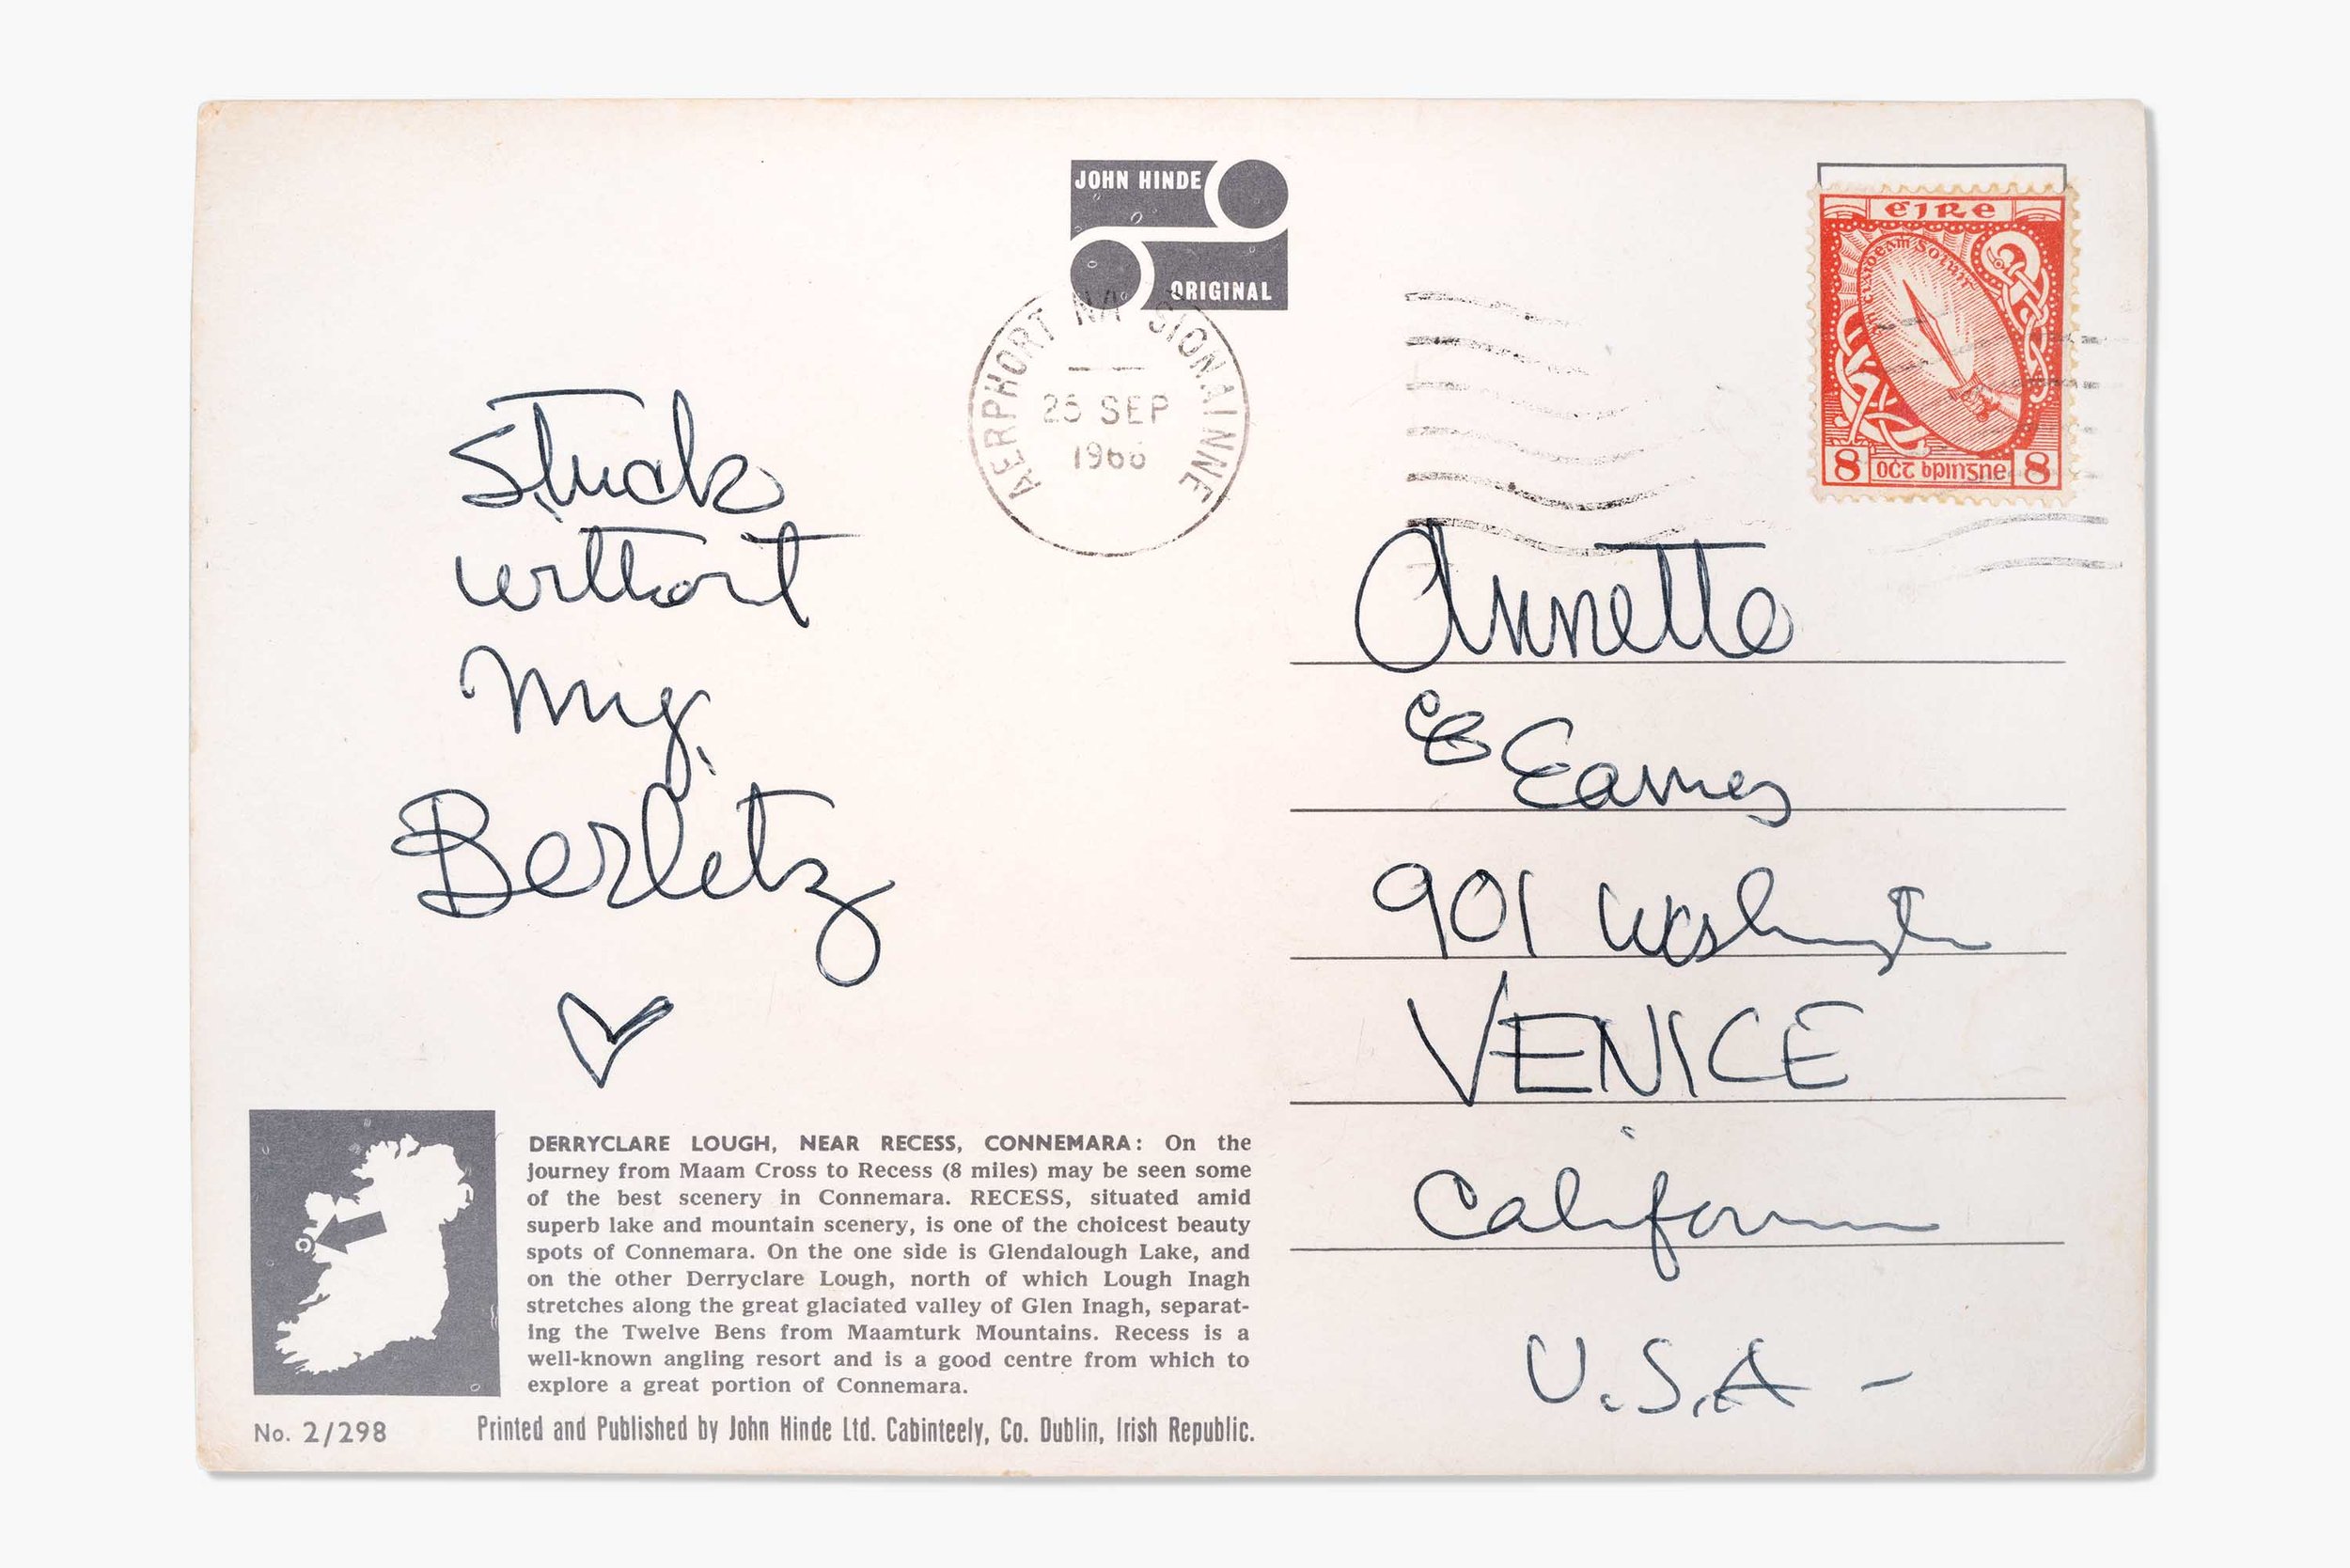 JOHN HINDE
ORIGINAL
AERPHORT NA SIONAINNE
25 SEP
1966
éIRe
cLAIDeAṁ SoLuIS
8 oCt ṗinṡne 8
Stuck
without
My
Berlitz
♡
Annette
℅ Eames
901 Washington
VENICE
California
U.S.A -
DERRYCLARE LOUGH, NEAR RECESS, CONNEMARA: On the
journey from Maam Cross to Recess (8 miles) may be seen some
of the best scenery in Connemara. RECESS, situated amid
superb lake and mountain scenery, is one of the choicest beauty
spots of Connemara. On the one side is Glendalough Lake, and
on the other Derryclare Lough, north of which Lough Inagh
stretches along the great glaciated valley of Glen Inagh, separat-
ing the Twelve Bens from Maamturk Mountains. Recess is a
well-known angling resort and is a good centre from which to
explore a great portion of Connemara.
No. 2/298
Printed and Published by John Hinde Ltd. Cabinteely, Co. Dublin, Irish Republic.